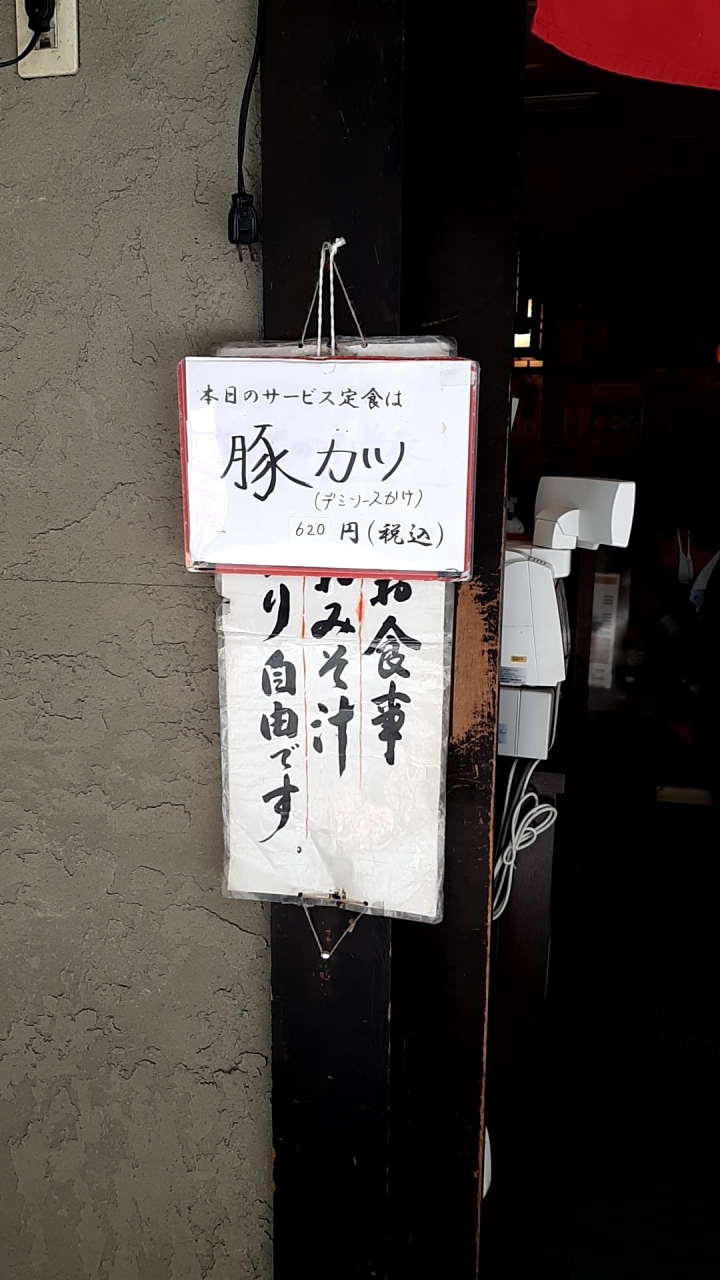 本日のサービス定食は
豚カツ
(デミソースかけ)
620 円(税込)
お食事
みそ汁
り自由です。